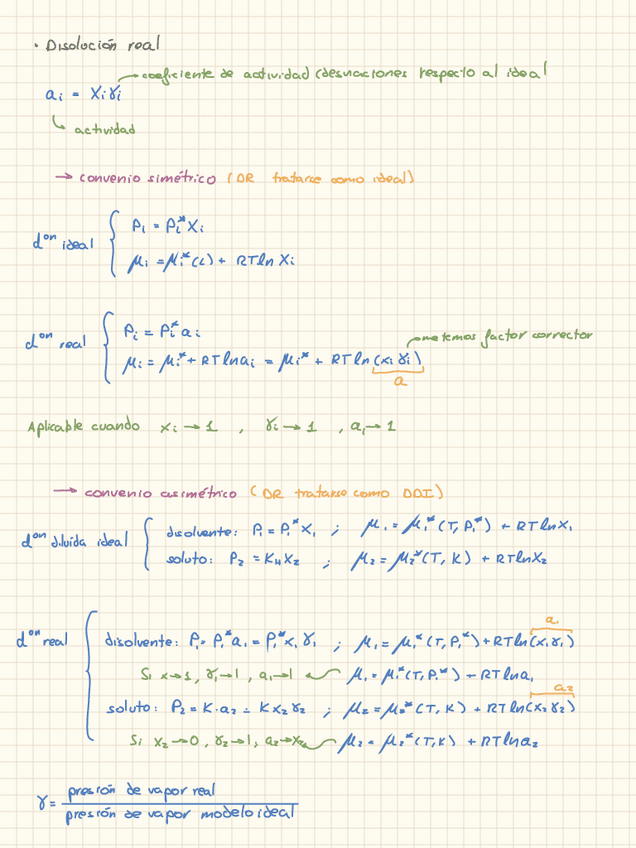 · Disolución real
coeficiente de actividad (desviaciones respecto al ideal
aᵢ = xᵢγᵢ
actividad
→ convenio simétrico (DR tratarse como ideal)
dᵒⁿ ideal { Pᵢ = Pᵢ* xᵢ
μᵢ = μᵢ*(L) + RT ln xᵢ
dᵒⁿ real { Pᵢ = Pᵢ* aᵢ
metemos factor corrector
μᵢ = μᵢ* + RT ln aᵢ = μᵢ* + RT ln (xᵢ γᵢ)
a
Aplicable cuando xᵢ → 1 , γᵢ → 1 , aᵢ → 1
→ convenio asimétrico (DR tratarse como DDI)
dᵒⁿ diluida ideal { disolvente: P₁ = P₁* x₁ ; μ₁ = μ₁*(T, P₁*) + RT ln x₁
soluto: P₂ = K_H x₂ ; μ₂ = μ₂*(T, K) + RT ln x₂
a₁
dᵒⁿ real { disolvente: P₁ = P₁* a₁ = P₁* x₁ γ₁ ; μ₁ = μ₁*(T, P₁*) + RT ln (x₁ γ₁)
Si x → 1 , γ₁ → 1 , a₁ → 1 μ₁ = μ₁*(T, P₁*) + RT ln a₁
a₂
soluto: P₂ = K · a₂ = K x₂ γ₂ ; μ₂ = μ₂*(T, K) + RT ln (x₂ γ₂)
Si x₂ → 0 , γ₂ → 1 , a₂ → x₂ μ₂ = μ₂*(T, K) + RT ln a₂
γ = presión de vapor real
presión de vapor modelo ideal